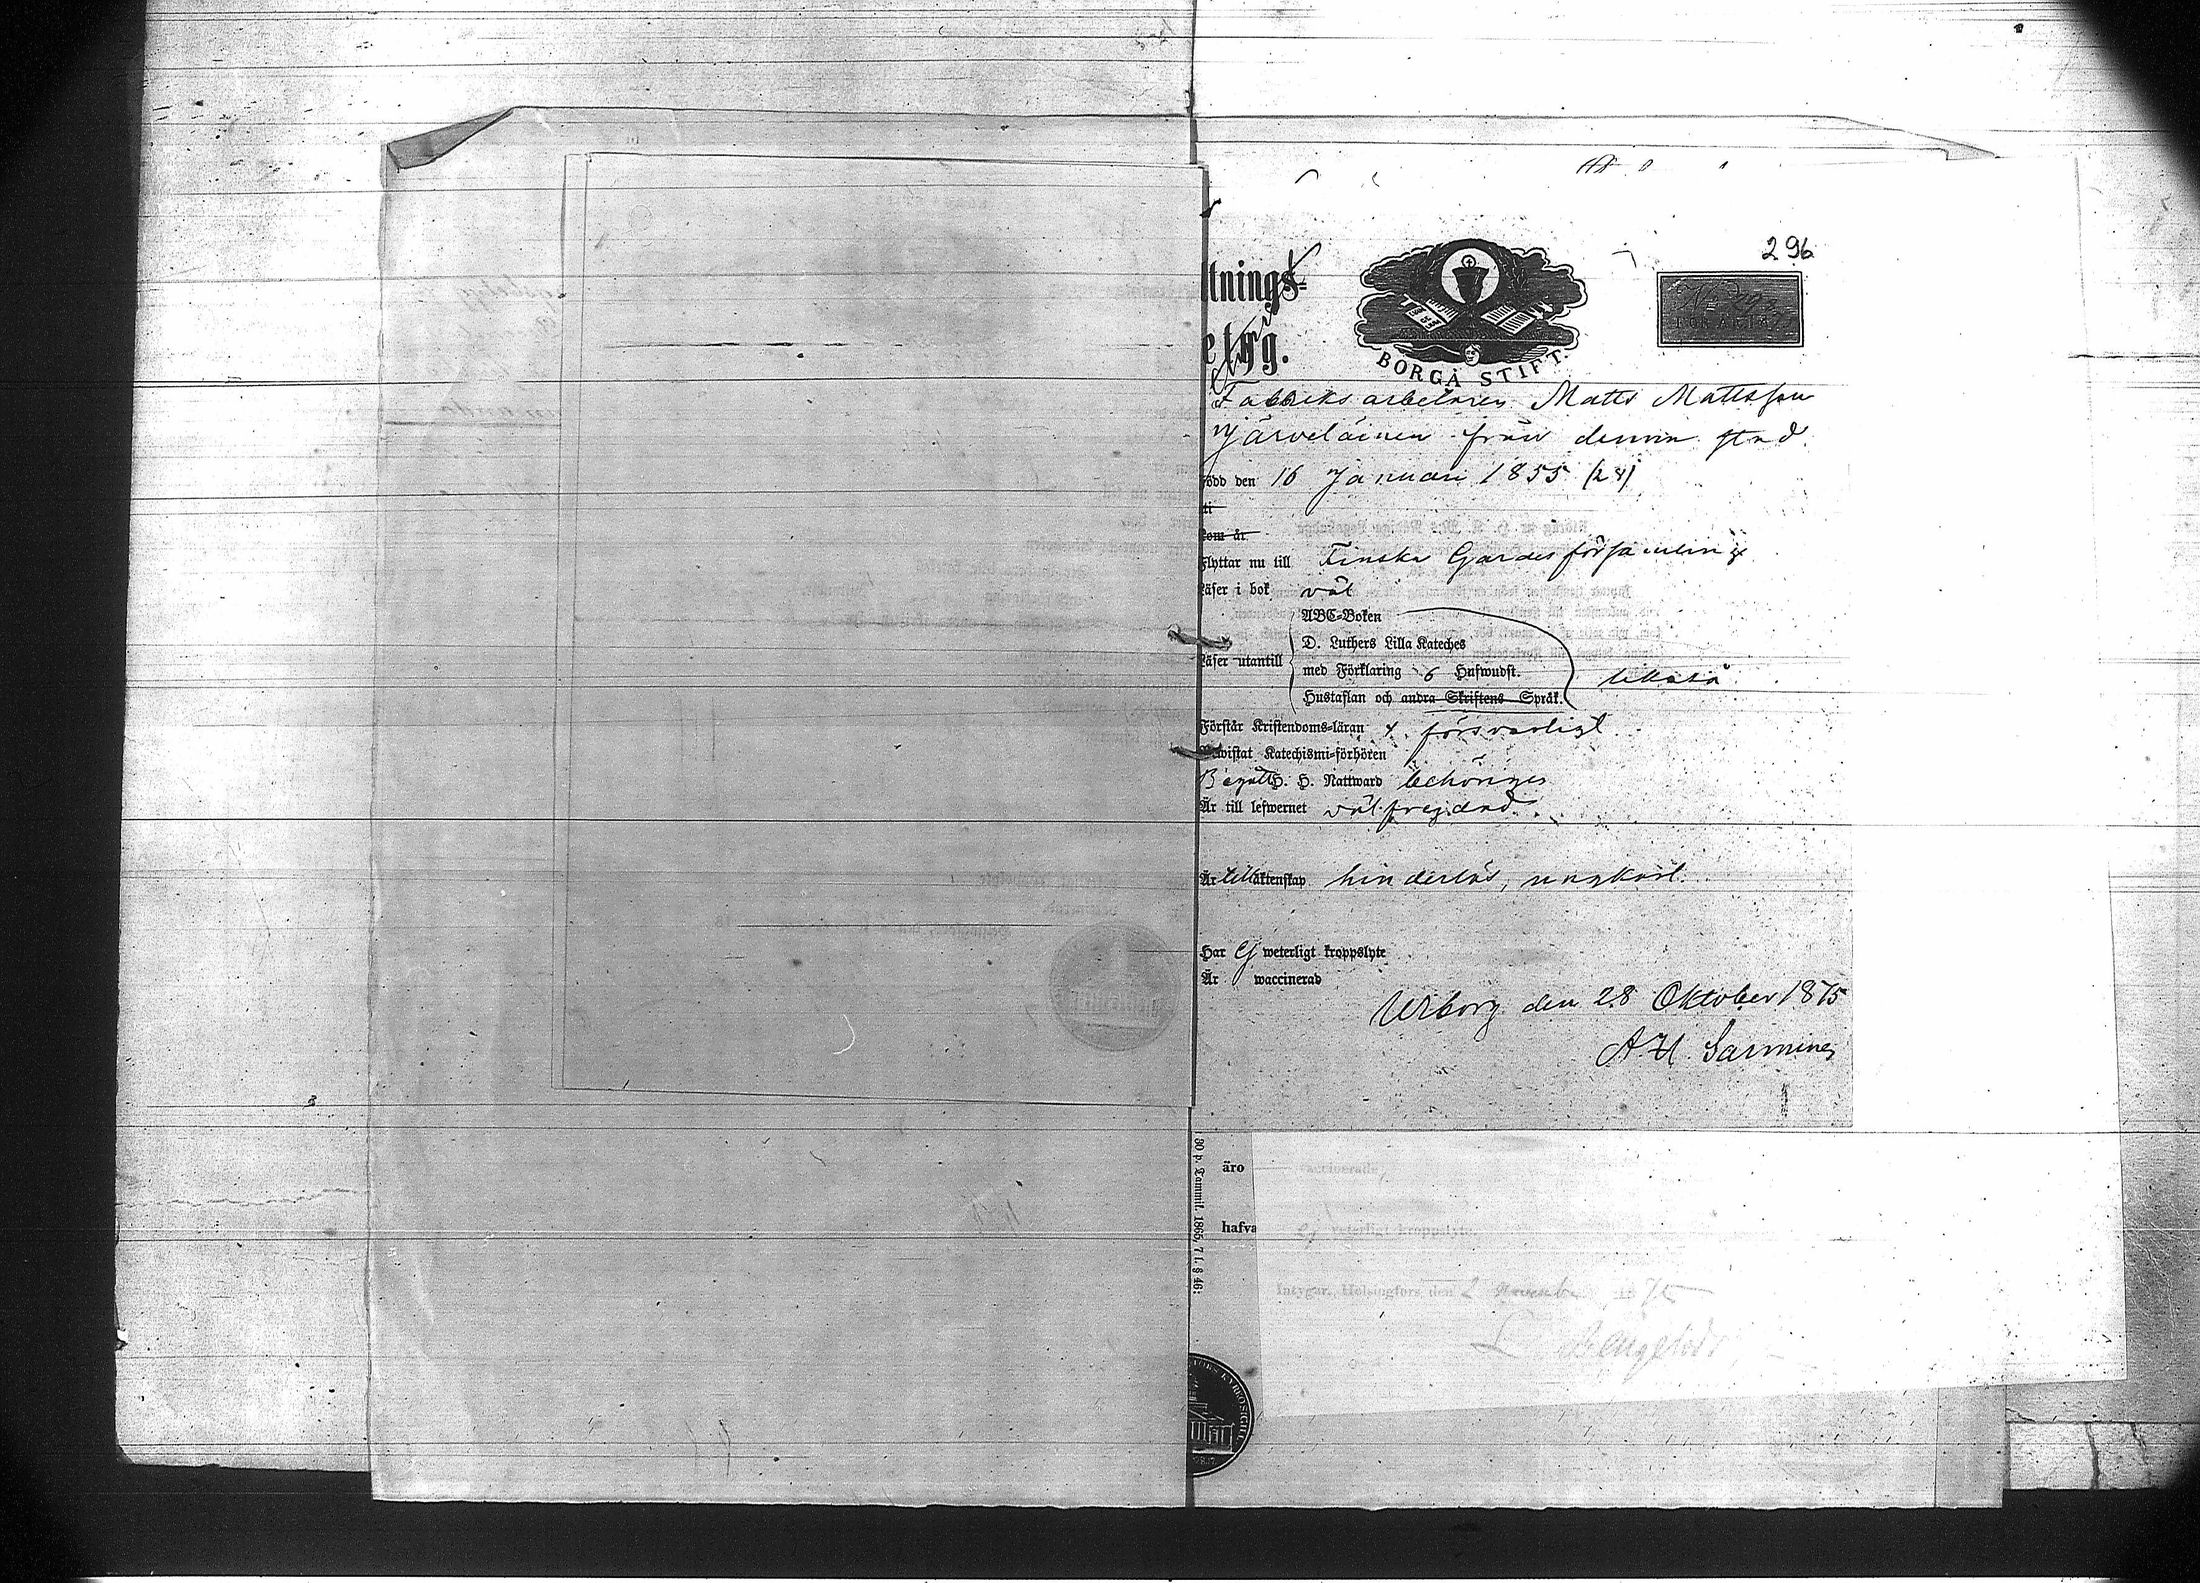 296
ltnings=
BORGÅ STIFT.
Fabriksarbetaren Matts Mattsson
Järveläinen från denna stad.
född den 16 Januari 1855 (24)
kom år
Flyttar nu till Finska Gardesförsamling
Läser i bok väl
ABC-Boken
D. Luthers Lilla Kateches
Läser utantill med Förklaring 6 Hufwudst. likaså
Hustaflan och andra Skriftens Språk.
Förstår Kristendoms-läran försvarligt
Bewistat Katechismi-förhören
Begått H. H. Nattward behörigen
Är till lefwernet välfrejdad.
Är till äktenskap hinderlös, ungkarl.
Har Ej weterligt kroppslyte
Är waccinerad
Wiborg den 28 Oktober 1875
A. H.
30 p. Tammik. 1865, 7 l. § 46:
äro vaccinerade,
hafva ej veterligt kroppslyte.
Intygar, Helsingfors den 2 November 1875